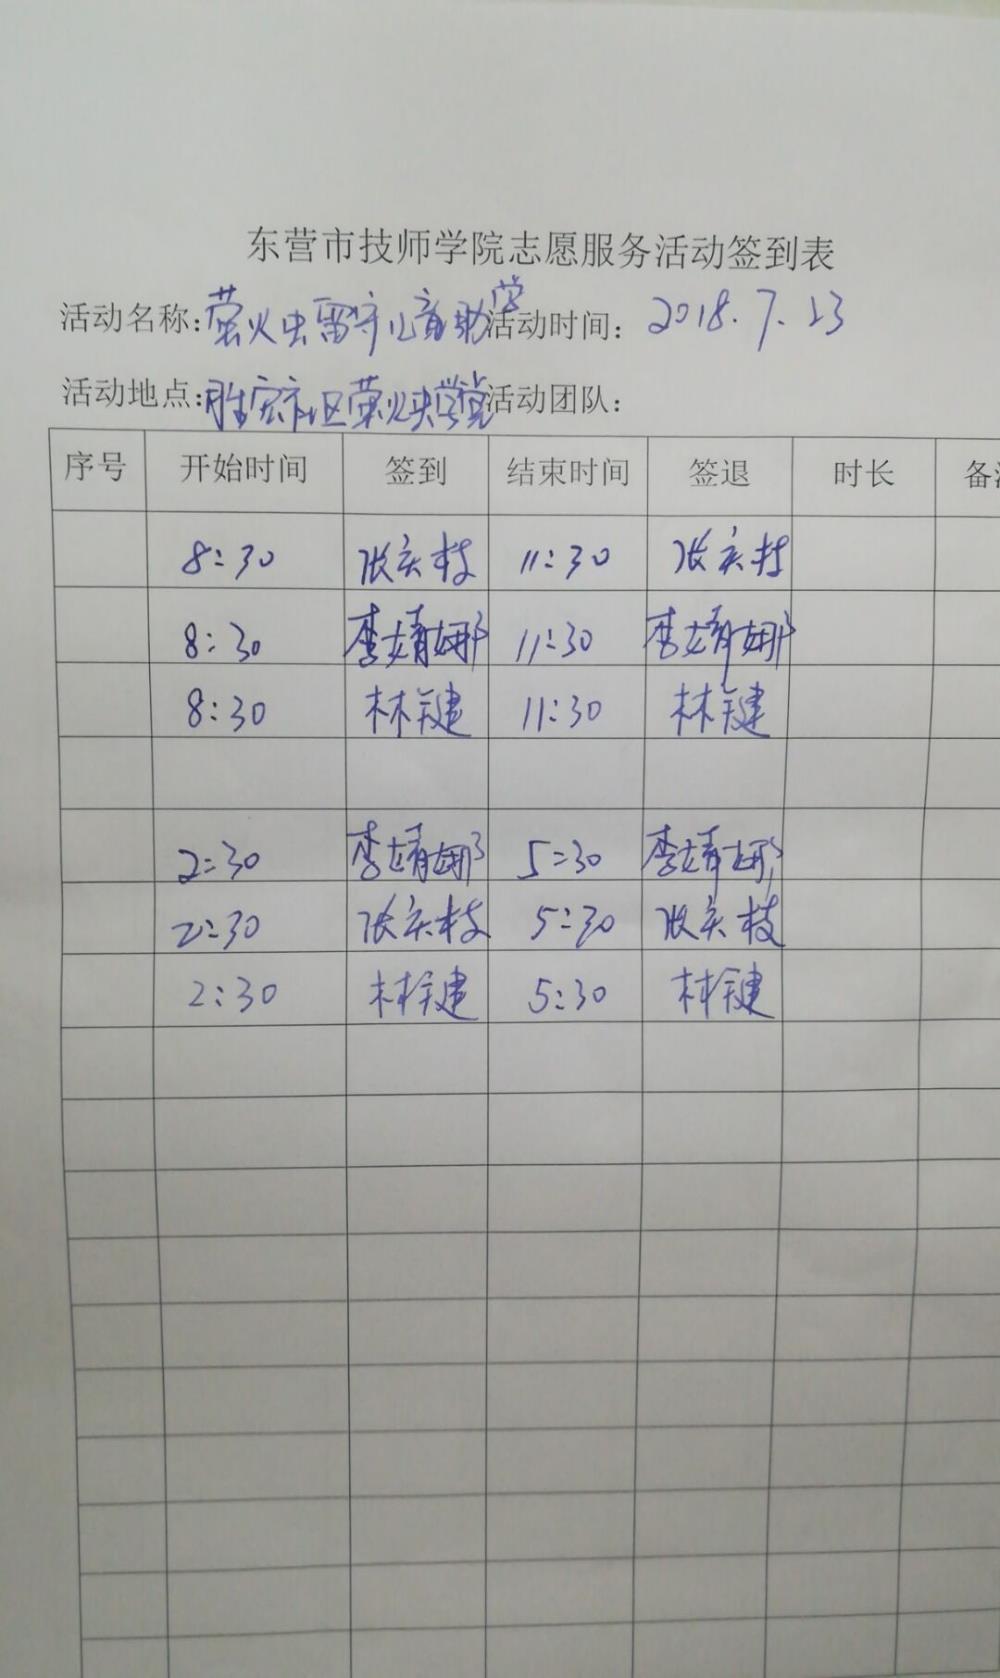 东营市技师学院志愿服务活动签到表
活动名称:萤火虫留守儿童助学 活动时间: 2018.7.23
活动地点:胜宏社区萤火虫学堂 活动团队:
序号 开始时间 签到 结束时间 签退 时长 备注
8:30 张关枝 11:30 张关枝
8:30 李婧娜 11:30 李婧娜
8:30 林键 11:30 林键
2:30 李婧娜 5:30 李婧娜
2:30 张关枝 5:30 张关枝
2:30 林键 5:30 林键